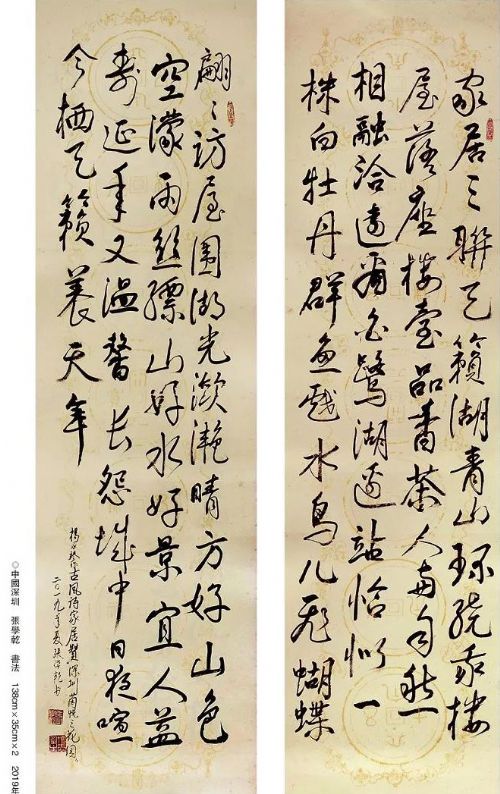 家居三聯天籟湖青山环绕我楼
屋落座楼臺品香茶人与自然
相融洽遠看白鹭湖边站恰似一
株白牡丹群鱼戏水鸟儿飛蝴蝶
翩〻访屋围湖光潋滟晴方好山色
空濛雨丝飘山好水好景宜人益
寿延年又温馨长怨城中日夜喧
今栖天籟养天年
作古風诗家居暨深圳
二〇一九年夏张学乾书
◎中國深圳 張學乾 書法 138cm×35cm×2 2019年